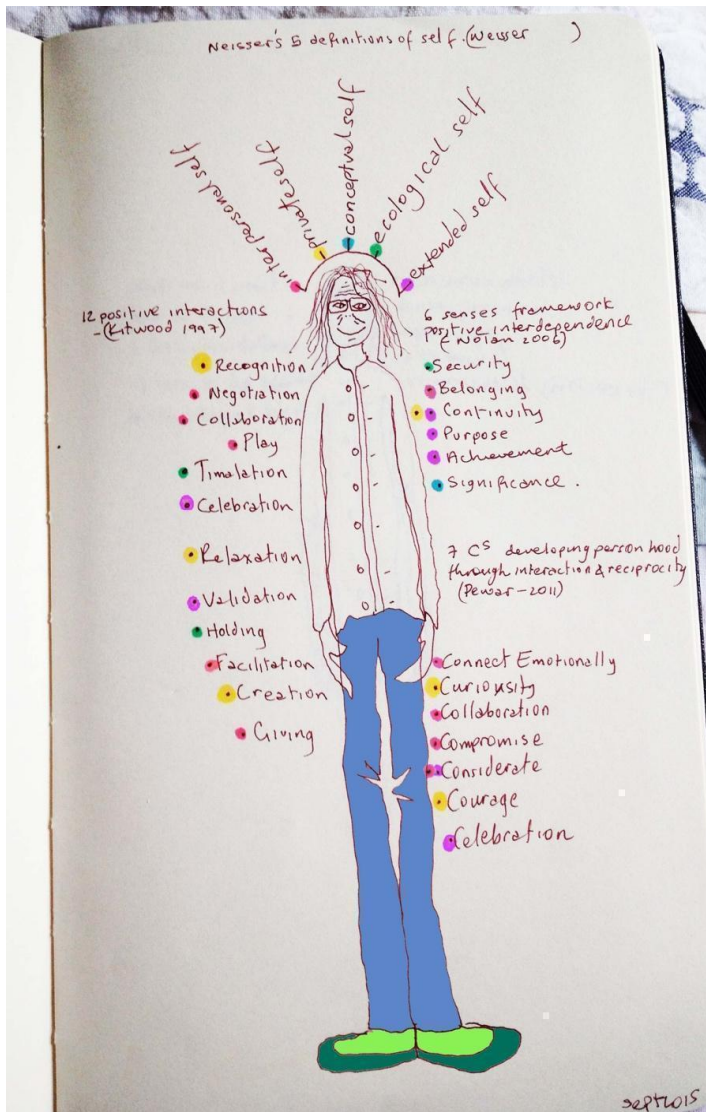 Neisser's 5 definitions of self. (Neisser )
interpersonal self
private self
conceptual self
ecological self
extended self
12 positive interactions
- (Kitwood 1997)
Recognition
Negotiation
Collaboration
Play
Timalation
Celebration
Relaxation
Validation
Holding
Facilitation
Creation
Giving
6 senses framework
positive interdependence
(Nolan 2006)
Security
Belonging
Continuity
Purpose
Achievement
Significance.
7 Cs developing person hood
through interaction & reciprocity
(Pewar-2011)
Connect Emotionally
Curiousity
Collaboration
Compromise
Considerate
Courage
Celebration
Sept 2015